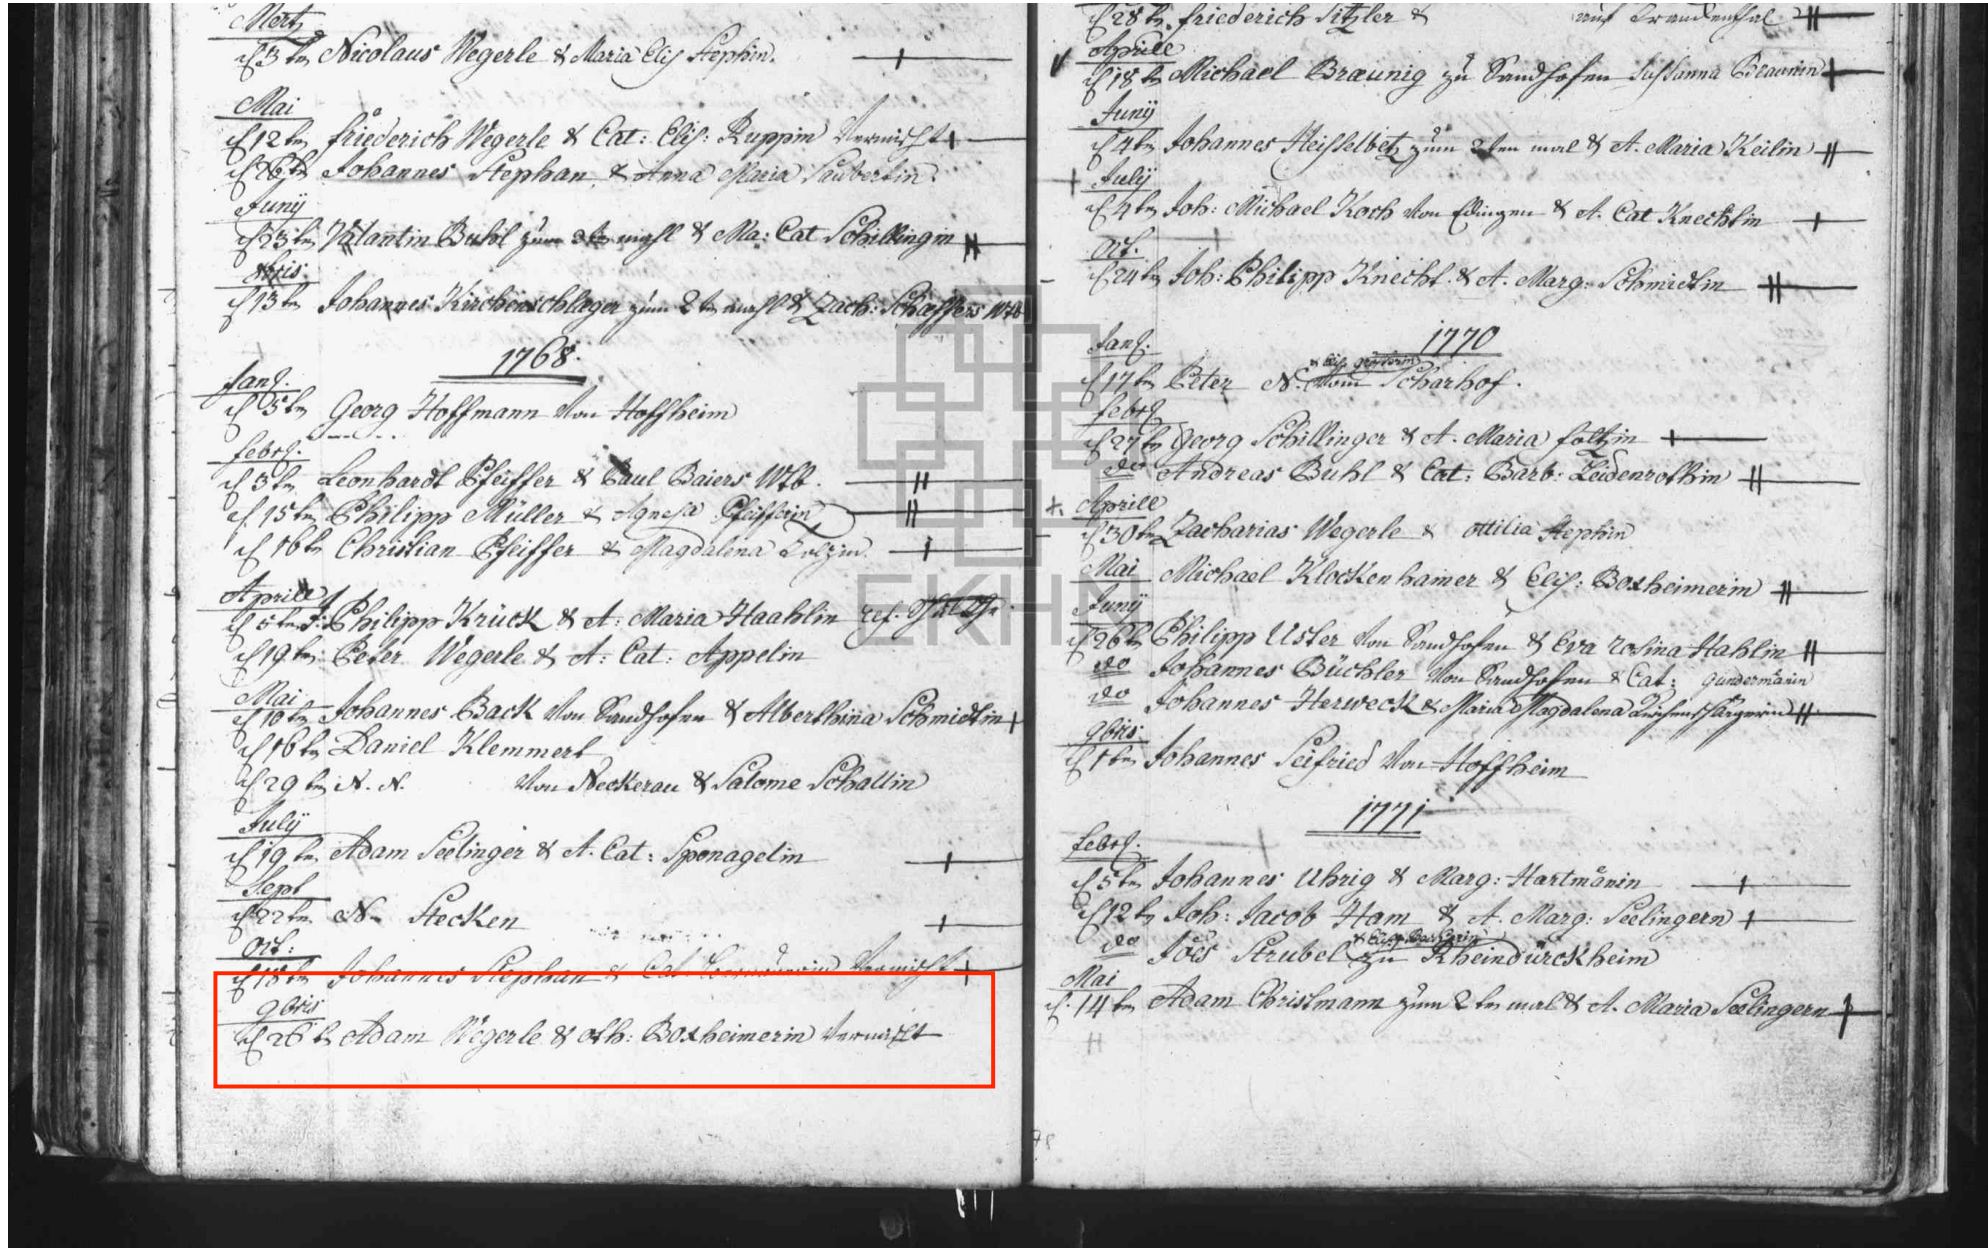 Mertz
d 3 tn Nicolaus Wegerle & Maria Elis Stephin.
Mai
d 12 tn friederich Wegerle & Cat: Elis: Ruppin Vermischt
d 26 tn Johannes Stephan & Anna Maria Saubertin.
Junÿ
d 23 tn Valantin Buhl zum 2 tn mahl & Ma: Cat Schillingin
d 13 tn Johannes Kirchenschlager zum 2 tn mahl & Zach: Schæffers Wtb
1768.
Jan.
d 5 tn Georg Hoffmann Von Hoffheim
febr.
d 3 tn Leonhardt Pfeiffer & Paul Baiers Wtb.
d. 15 tn Philipp Müller & Agnesa Pfeifferin
d 16 tn Christian Pfeiffer & Magdalena
Aprill
d 5 tn J: Philipp Krück & A: Maria Haahlin ref.
d 19 tn Peter Wegerle & A: Cat: Appelin
Mai
d 10 tn Johannes Back Von Sandhofen & Alberthina Schmidtin
d 16 tn Daniel Klemmert
d 29 tn N. N. Von Neckerau & Salome Schallin
Julÿ
d 19 tn Adam Seelinger & A. Cat: Sponagelin
Sept
d 22 tn N. Stecken
Oct:
d 18 tn Johannes Stephan & Cat. Vermischt
9bris
d 26 tn Adam Wegerle & Oth: Boxheimerin Vermischt
d 28 tn friederich Sitzler & auf
Aprille
d 18 tn Michael Bræunig zu Sandhofen Sussanna Braunin
Junÿ
d 4 tn Johannes Heisselbetz zum 2ten mal & A. Maria Keilin
Julÿ
d 4 tn Joh: Michael Koch Von Edingen & A. Cat Knechtin
Oct.
d 24 tn Joh: Philipp Knecht & A. Marg: Schmidtin
1770
Jan.
& Elis
d 17 tn Peter N. Vom Scharhof.
febr.
d 27 tn Georg Schillinger & A. Maria foltzin
do Andreas Buhl & Cat: Barb: Leidenrothin
Aprill
d 30 tn Zacharias Wegerle & Ottilia Stephin
Mai Michael Klockenhaimer & Elis: Boxheimerin
Junÿ
d 26 tn Philipp Uster Von Sandhofen & Eva Rosina Hahlin
do Johannes Büchler Von Sandhofen & Cat: Gundermänin
do Johannes Herweck & Maria Magdalena
9bris
d 1 tn Johannes Seifried Von Hoffheim
1771
febr.
d 5 tn Johannes Uhrig & Marg: Hartmänin
d 12 tn Joh: Jacob Ham & A. Marg: Seelingern
do Joēs Strubel zu Rheindürckheim
Mai
d. 14 tn Adam Christmann zum 2 tn mal & A. Maria Seelingern
EKHN